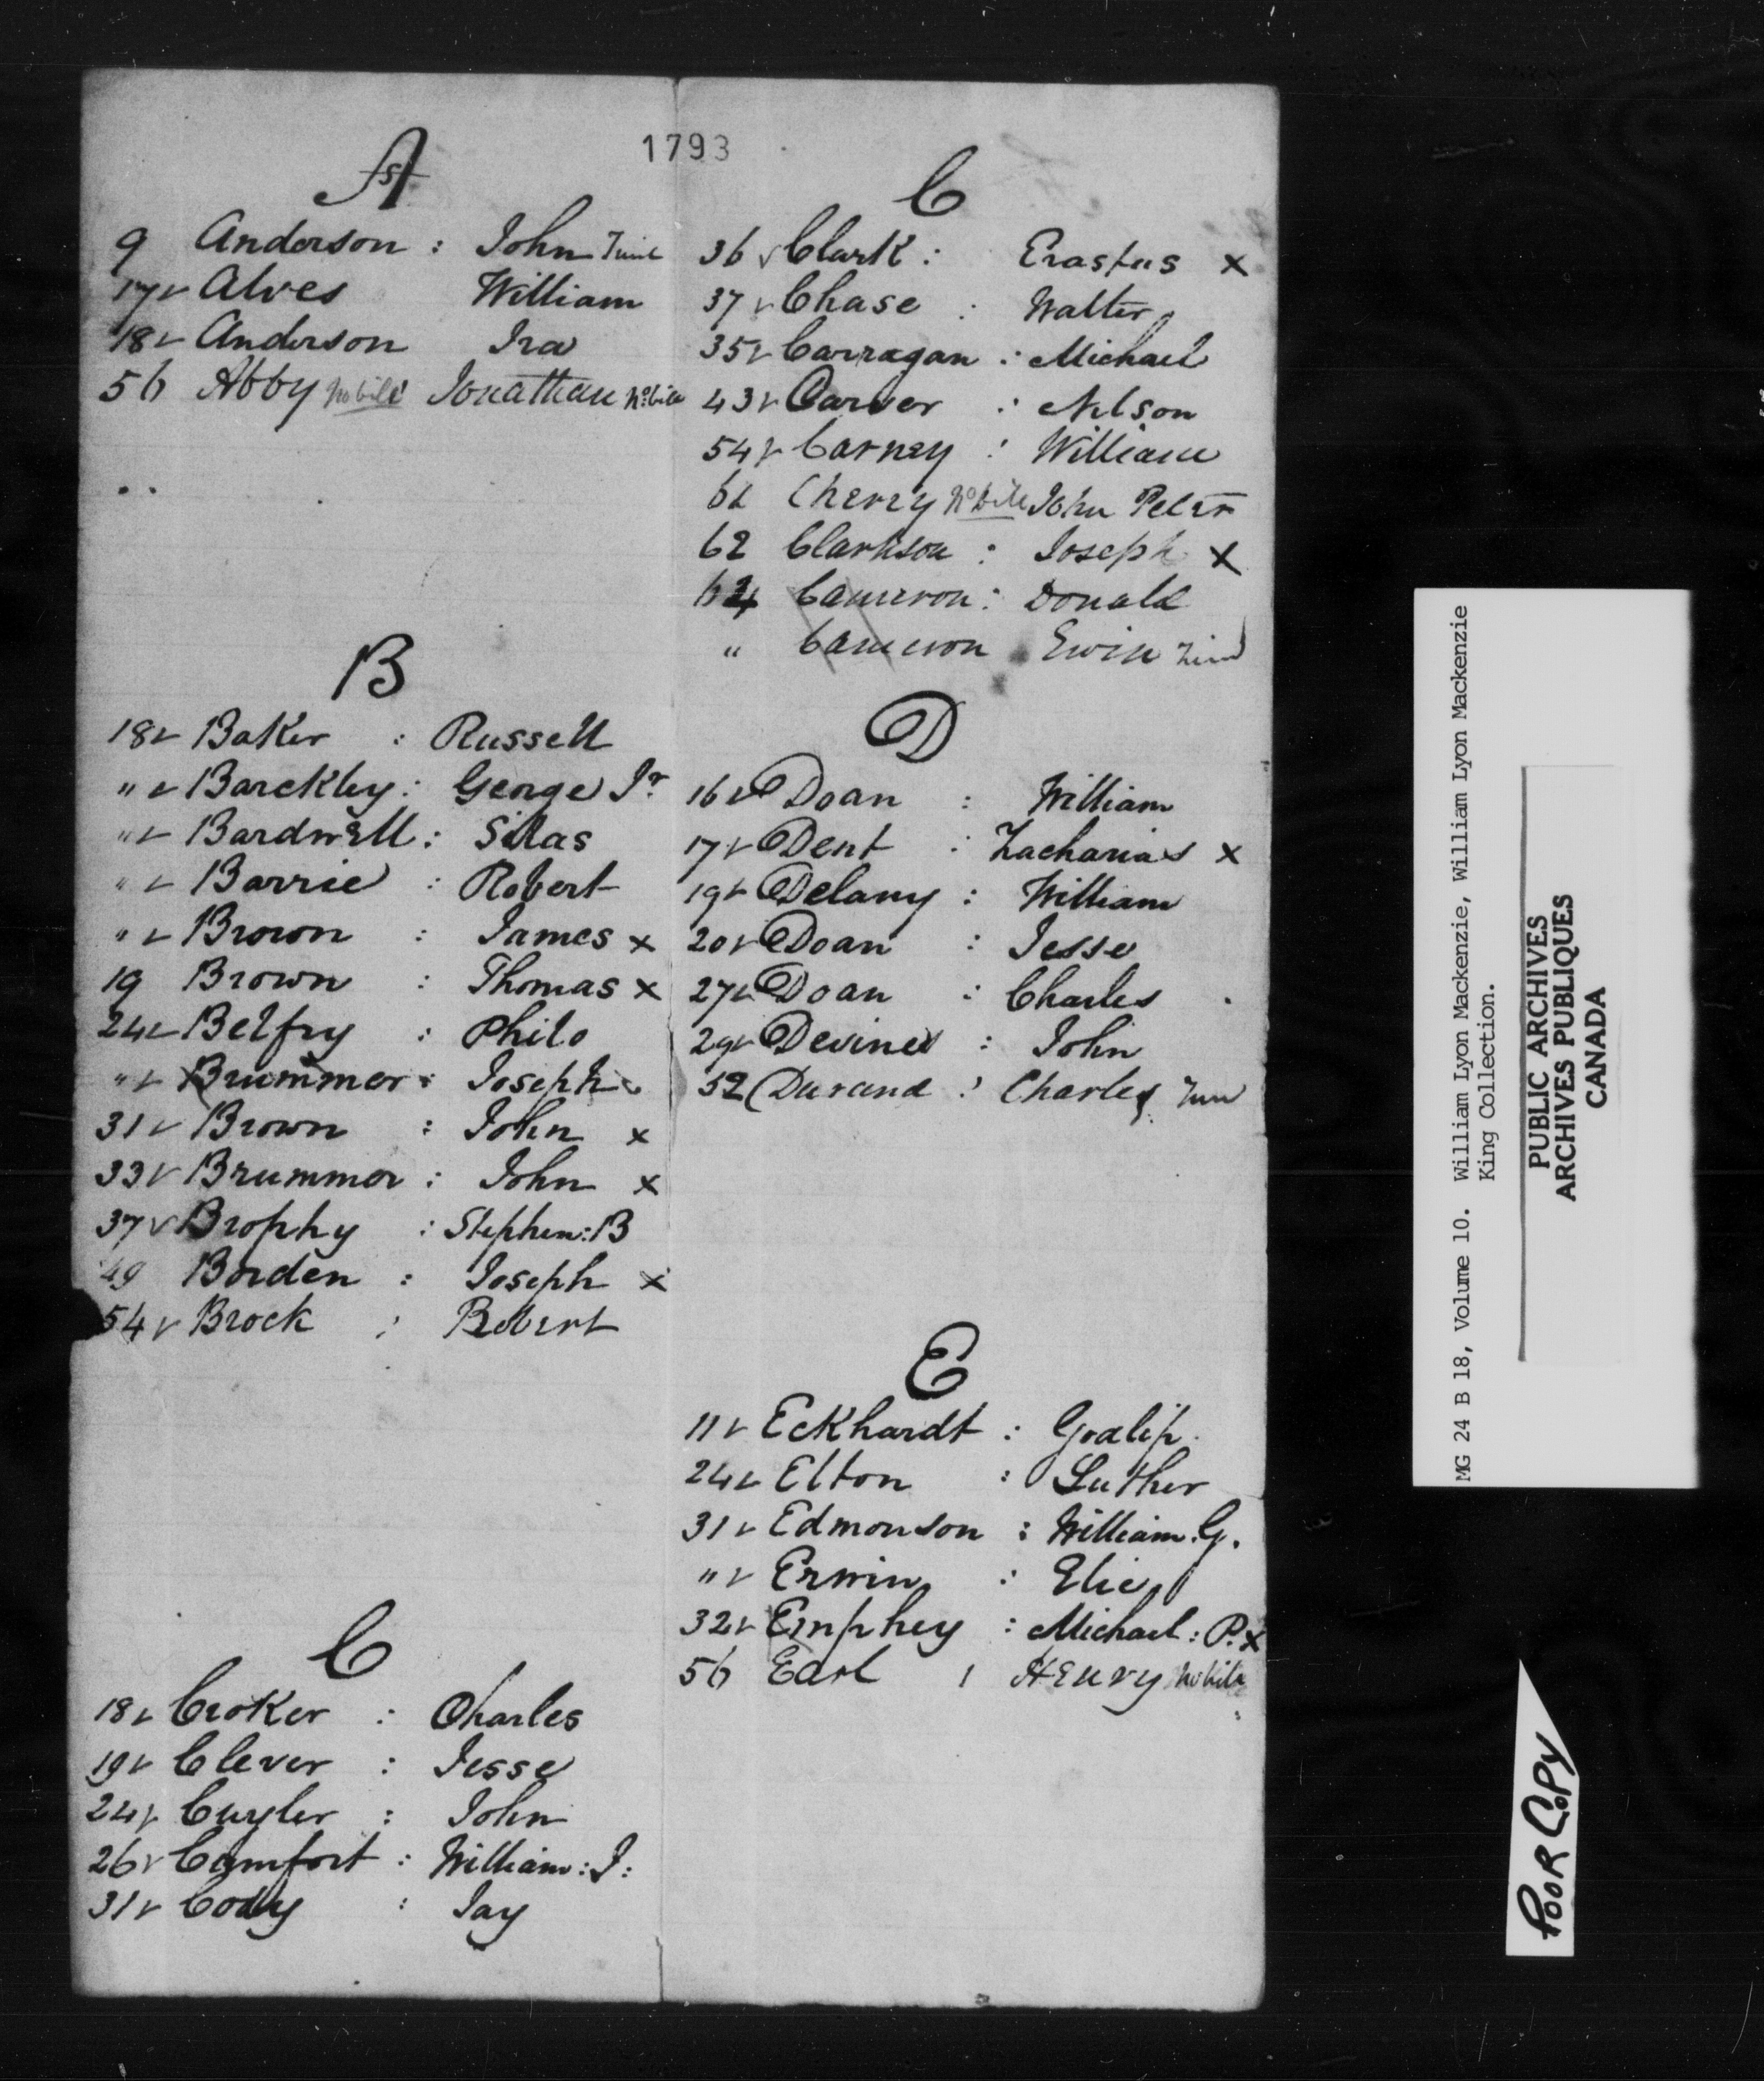 1793
A
9 Anderson : John
17 v Alves William
18 v Anderson Ira
56 Abby no bill Jonathan No bill
B
18 v Baker : Russell
" v Barckley : George Jr
" v Bardwell : Silas
" v Barrie : Robert
" v Brown : James x
19 Brown : Thomas x
24 v Belfry : Philo
" v Brummer : Joseph
31 v Brown : John x
33 v Brummer : John x
37 v Brophy : Stephen : B
49 Borden : Joseph x
54 v Brock : Robert
C
18 v Croker : Charles
19 v Clever : Jesse
24 v Cuyler : John
26 v Comfort : William : J :
31 v Cody : Jay
C
36 v Clark : Erastus x
37 v Chase : Walter
35 v Carragan : Michael
43 v Carver : Nelson
54 v Carney : William
Cherry No bill John Peter
62 Clarkson : Joseph x
64 Cameron : Donald
" Cameron Ewin
D
16 v Doan : William
17 v Dent : Zacharias x
19 v Delany : William
20 v Doan : Jesse
27 v Doan : Charles
29 v Devine : John
52 Durand : Charles
E
11 v Eckhardt : Godlip
24 v Elton : Luther
31 v Edmonson : William . G .
" v Erwin : Elie
32 v Emphey : Michael : P. x
56 Earl : Henry No bill
MG 24 B 18, Volume 10. William Lyon Mackenzie, William Lyon Mackenzie
King Collection.
PUBLIC ARCHIVES
ARCHIVES PUBLIQUES
CANADA
POOR COPY